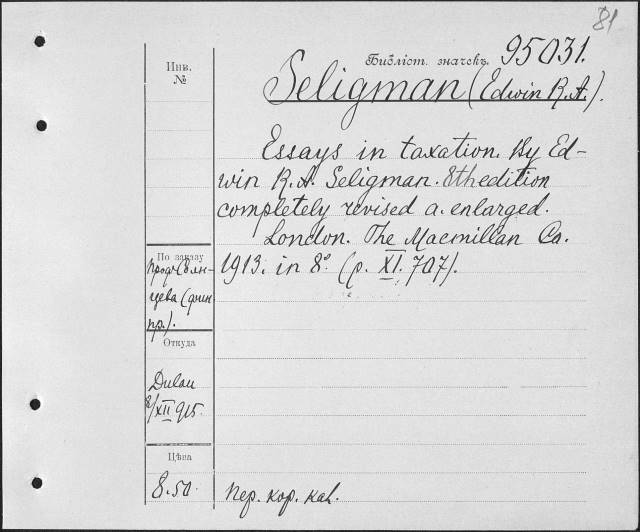 81
Библіот. значекъ. 95031.
Инв.
№
Seligman (Edwin R.A.).
Essays in taxation. By Ed-
win R.A. Seligman. 8th edition
completely revised a. enlarged.
London. The Macmillan Co.
1913. in 8° (p. XI. 707).
По заказу
(фин
пр.).
Откуда
Dulau
8/XII 915.
Цѣна
8.50.
пер. кор. каl.